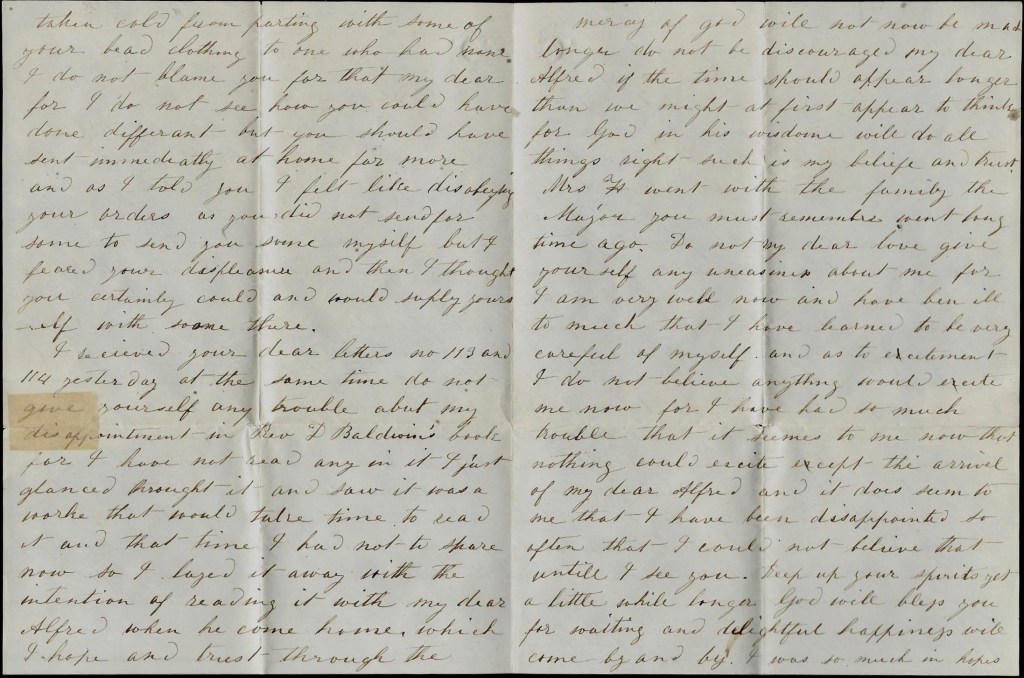 taken cold from parting with some of
your bead clothing to one who had none
I do not blame you for that my dear
for I do not see how you could have
done differant but you should have
sent immediatly at home for more
and as I told you I felt like disobeying
your orders as you did not send for
some to send you some myself but I
feared your displeasure and then I thought
you certainly could and would suply yours
-elf with some there.
I recieved your dear letters no 113 and
114 yesterday at the same time do not
give yourself any trouble abut my
disappointment in Rev D Baldwin's book
for I have not read any in it I just
glanced throught it and saw it was a
worke that would take time to read
it and that time I had not to spare
now so I layed it away with the
intention of reading it with my dear
Alfred when he come home. which
I hope and trust through the
mercy of god will not now be much
longer do not be discouraged my dear
Alfred if the time should appear longer
than we might at first appear to think
for God in his wisdome will do all
things right such is my beliefe and trust.
Mrs H went with the family the
Major you must remembre went long
time ago. Do not my dear love give
yourself any uneasiness about me for
I am very well now and have ben ill
to much that I have learned to be very
careful of myself. and as to excitement
I do not believe anything would excite
me now for I have had so much
trouble that it seemes to me now that
nothing could excite except the arrival
of my dear Alfred and it does seem to
me that I have been disappointed so
often that I could not believe that
untill I see you. Keep up your spirits yet
a little while longer God will bless you
for waiting and delightful happiness will
come by and by. I was so much in hopes